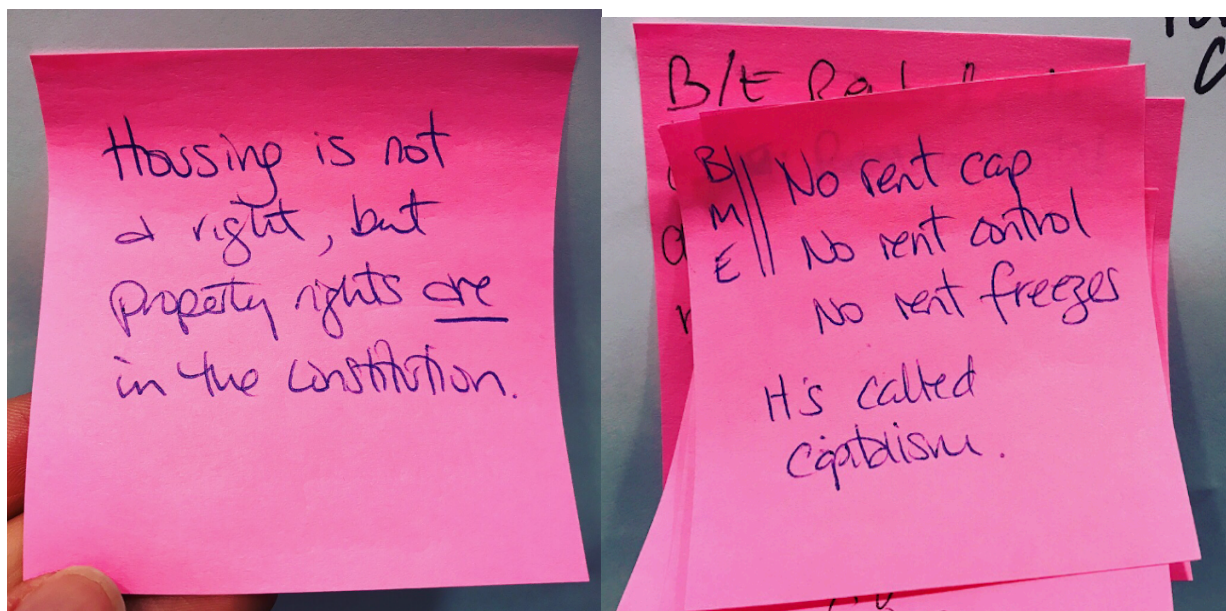 Housing is not
a right, but
property rights are
in the constitution.
B/E
B
M
E
No rent cap
No rent control
No rent freezes
It's called
capitalism.